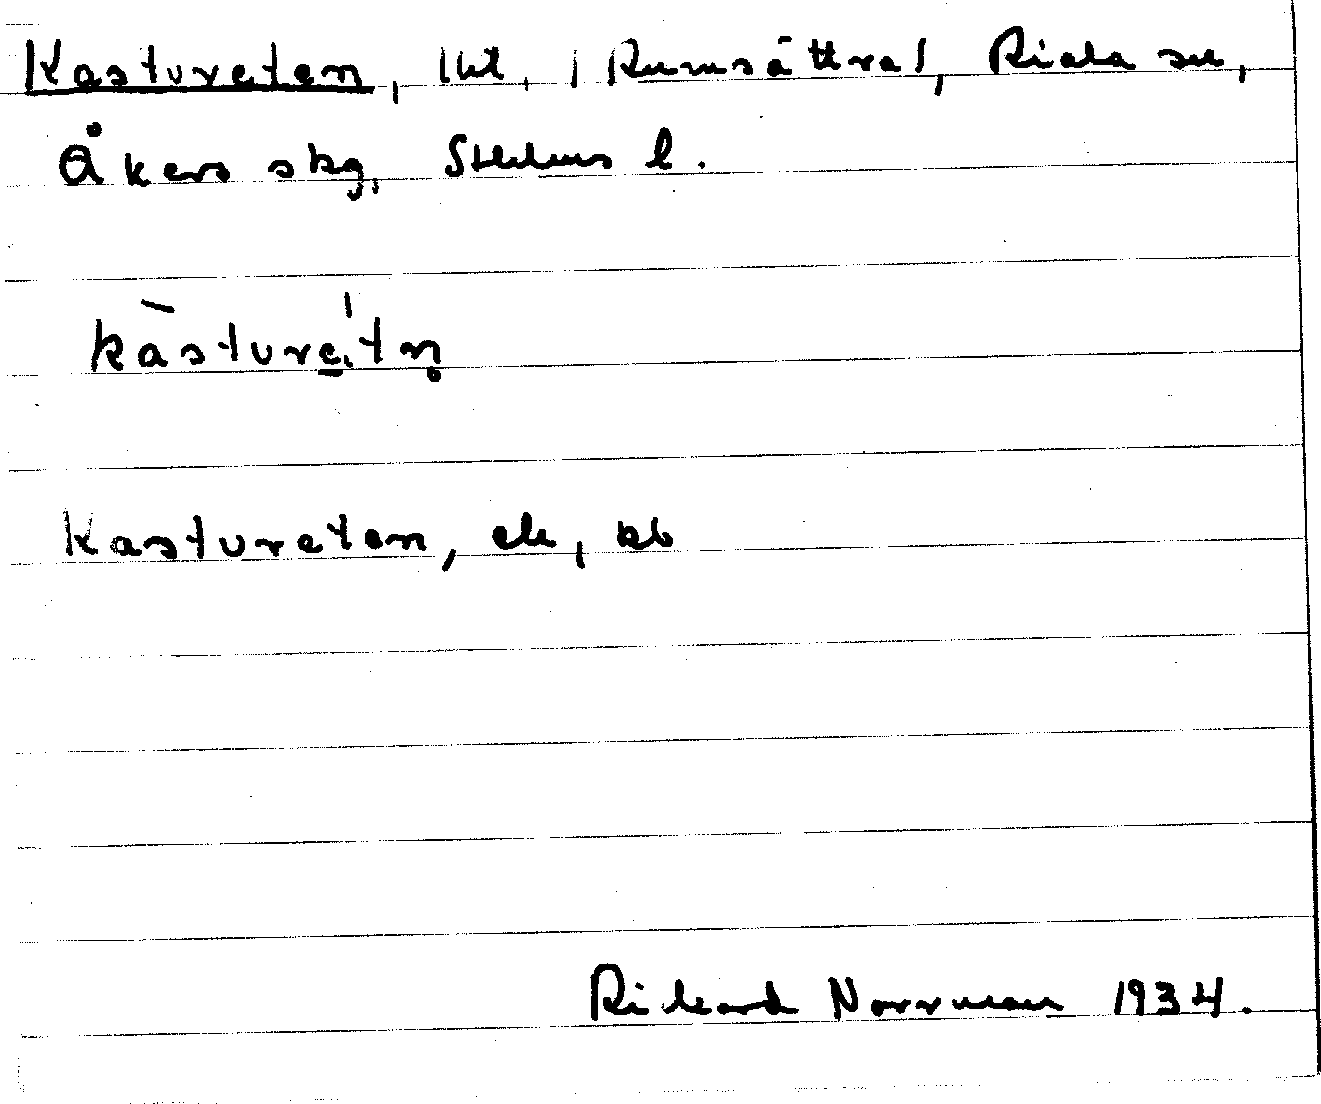 Kastureten, lht, (Rumsättra), Riala sn,
Åkers skg, Sthlms l.
kasturetn̥
Kastureten, ek, kb
Rikard Norrman 1934.